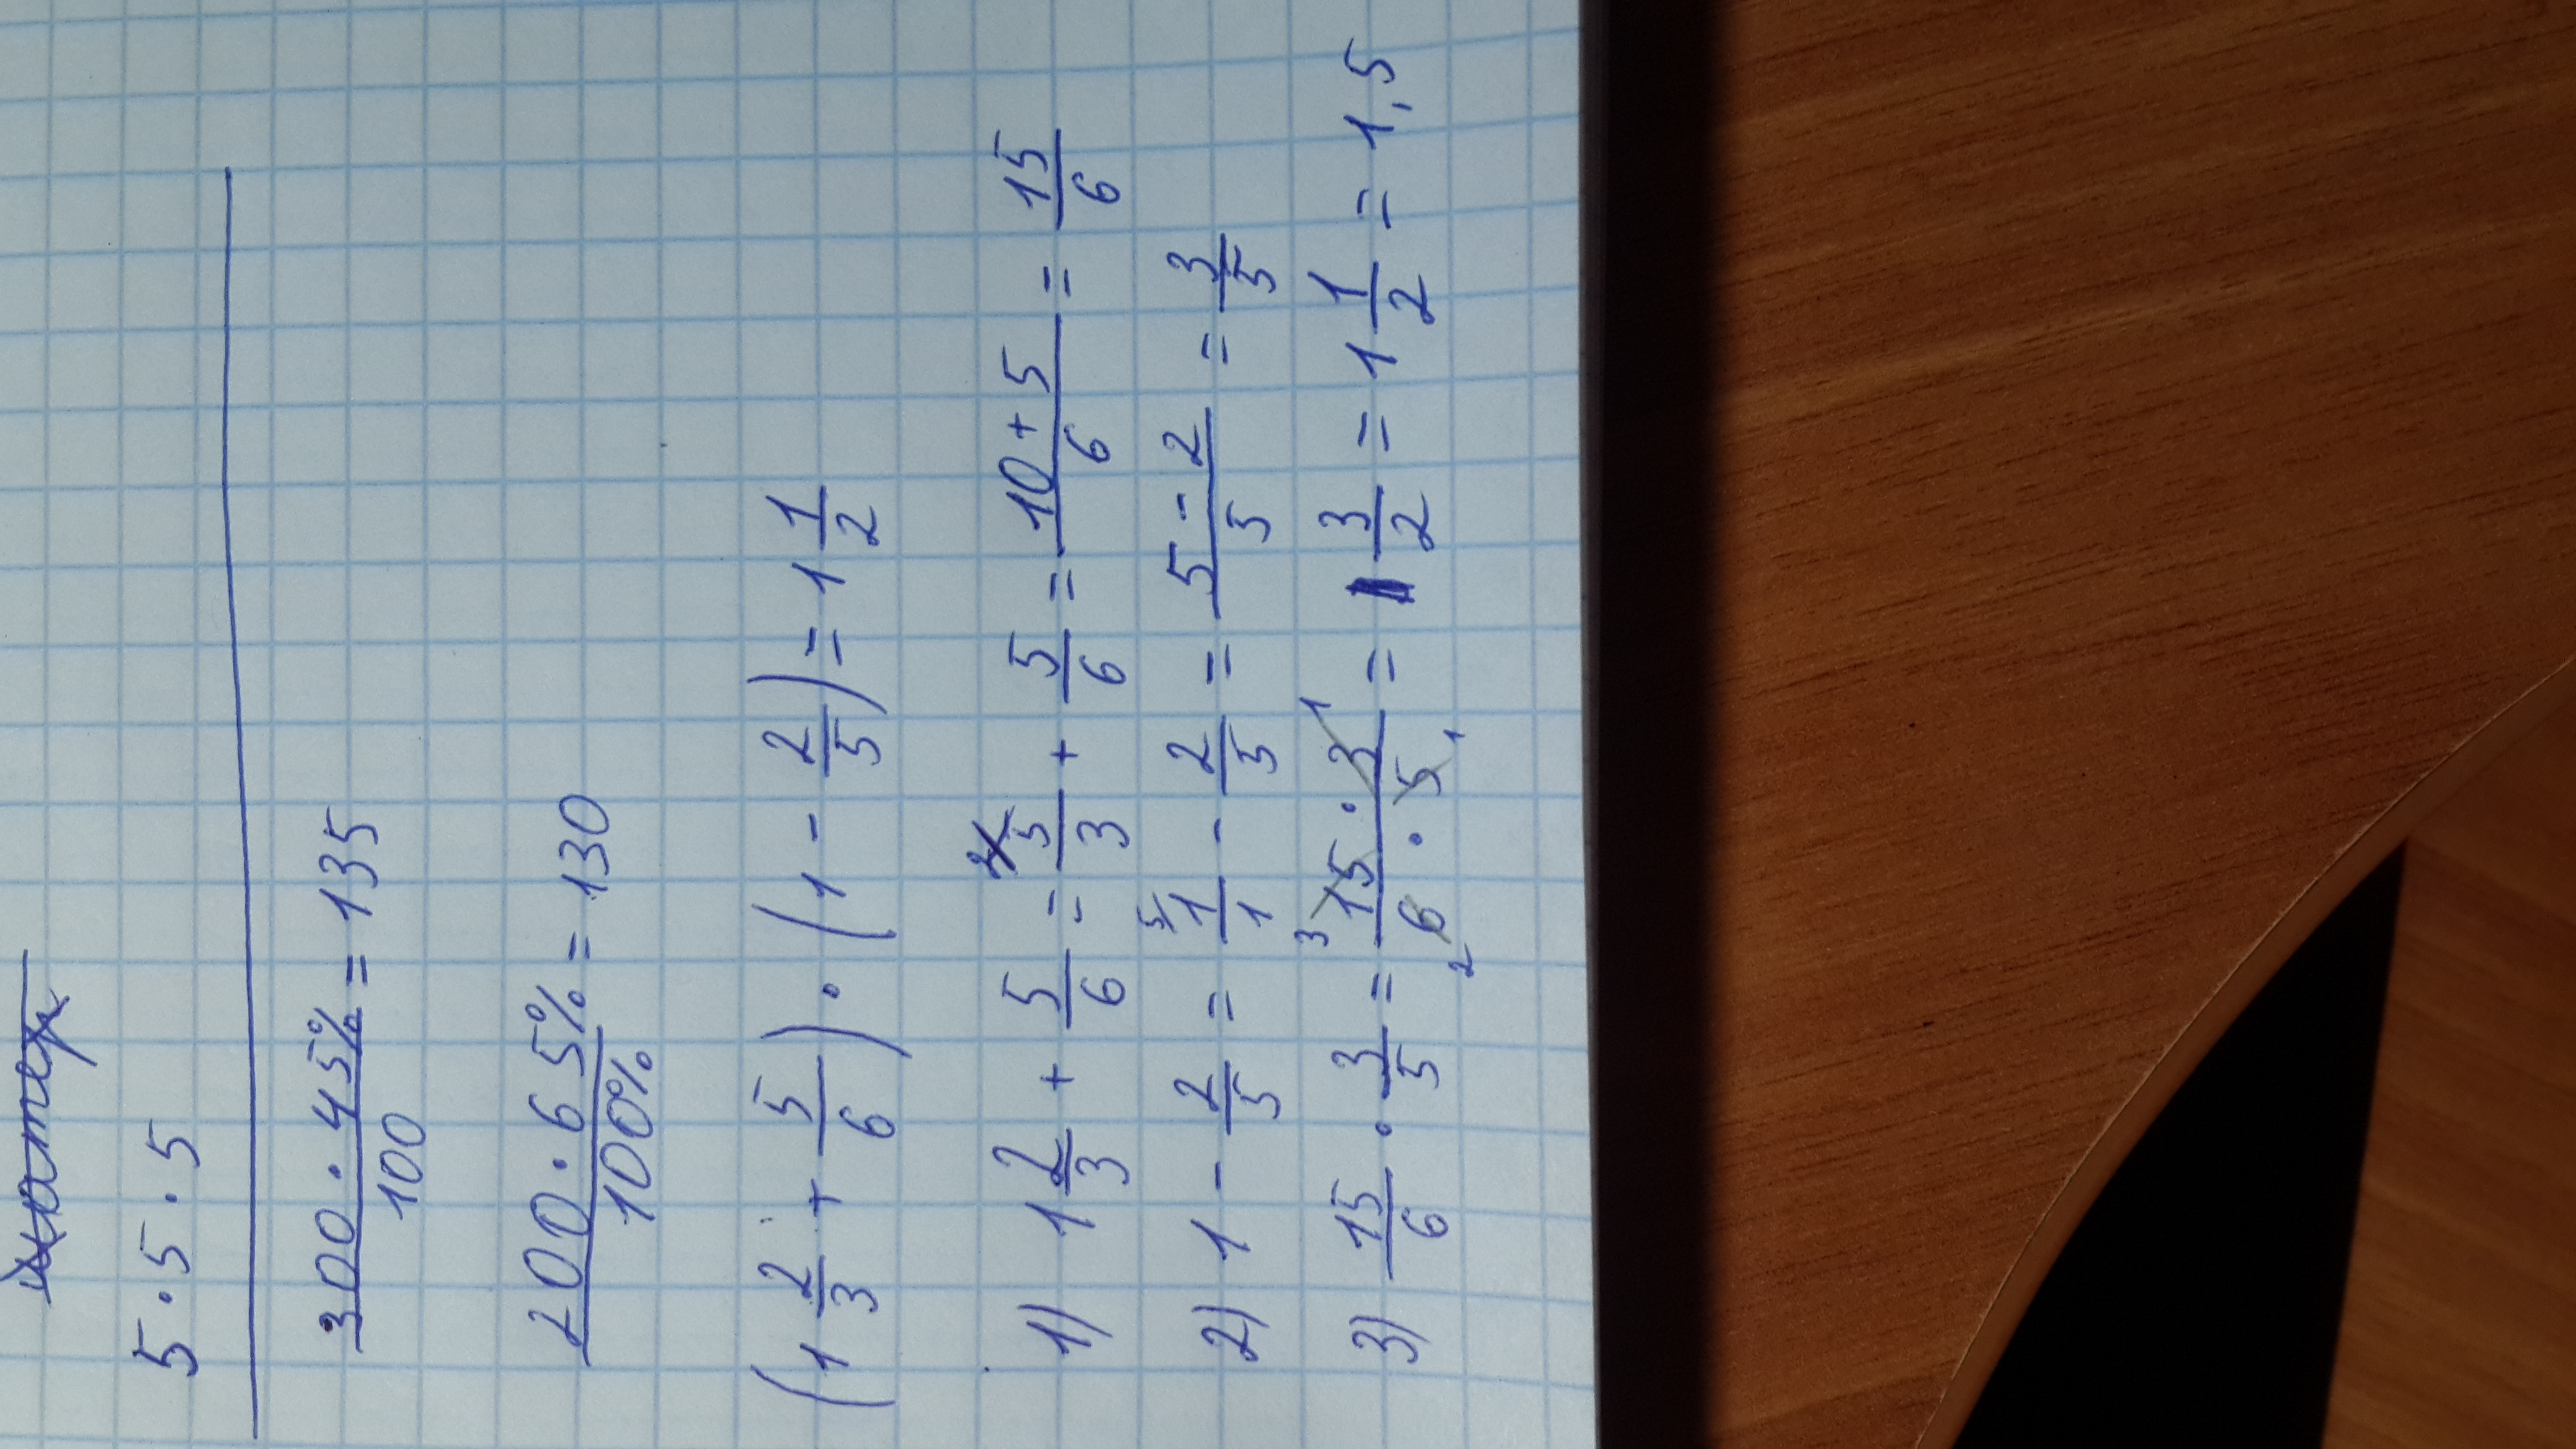 5 · 5 · 5
300 · 45% / 100 = 135
200 · 65% / 100% = 130
(1 2/3 + 5/6) · (1 - 2/5) = 1 1/2
1) 1 2/3 + 5/6 = 5/3 + 5/6 = 10 + 5 / 6 = 15/6
2) 1 - 2/5 = 5/ 1/1 - 2/5 = 5 - 2 / 5 = 3/5
3) 15/6 · 3/5 = 3 15 · 3 1 / 2 6 · 5 1 = 3/2 = 1 1/2 = 1,5